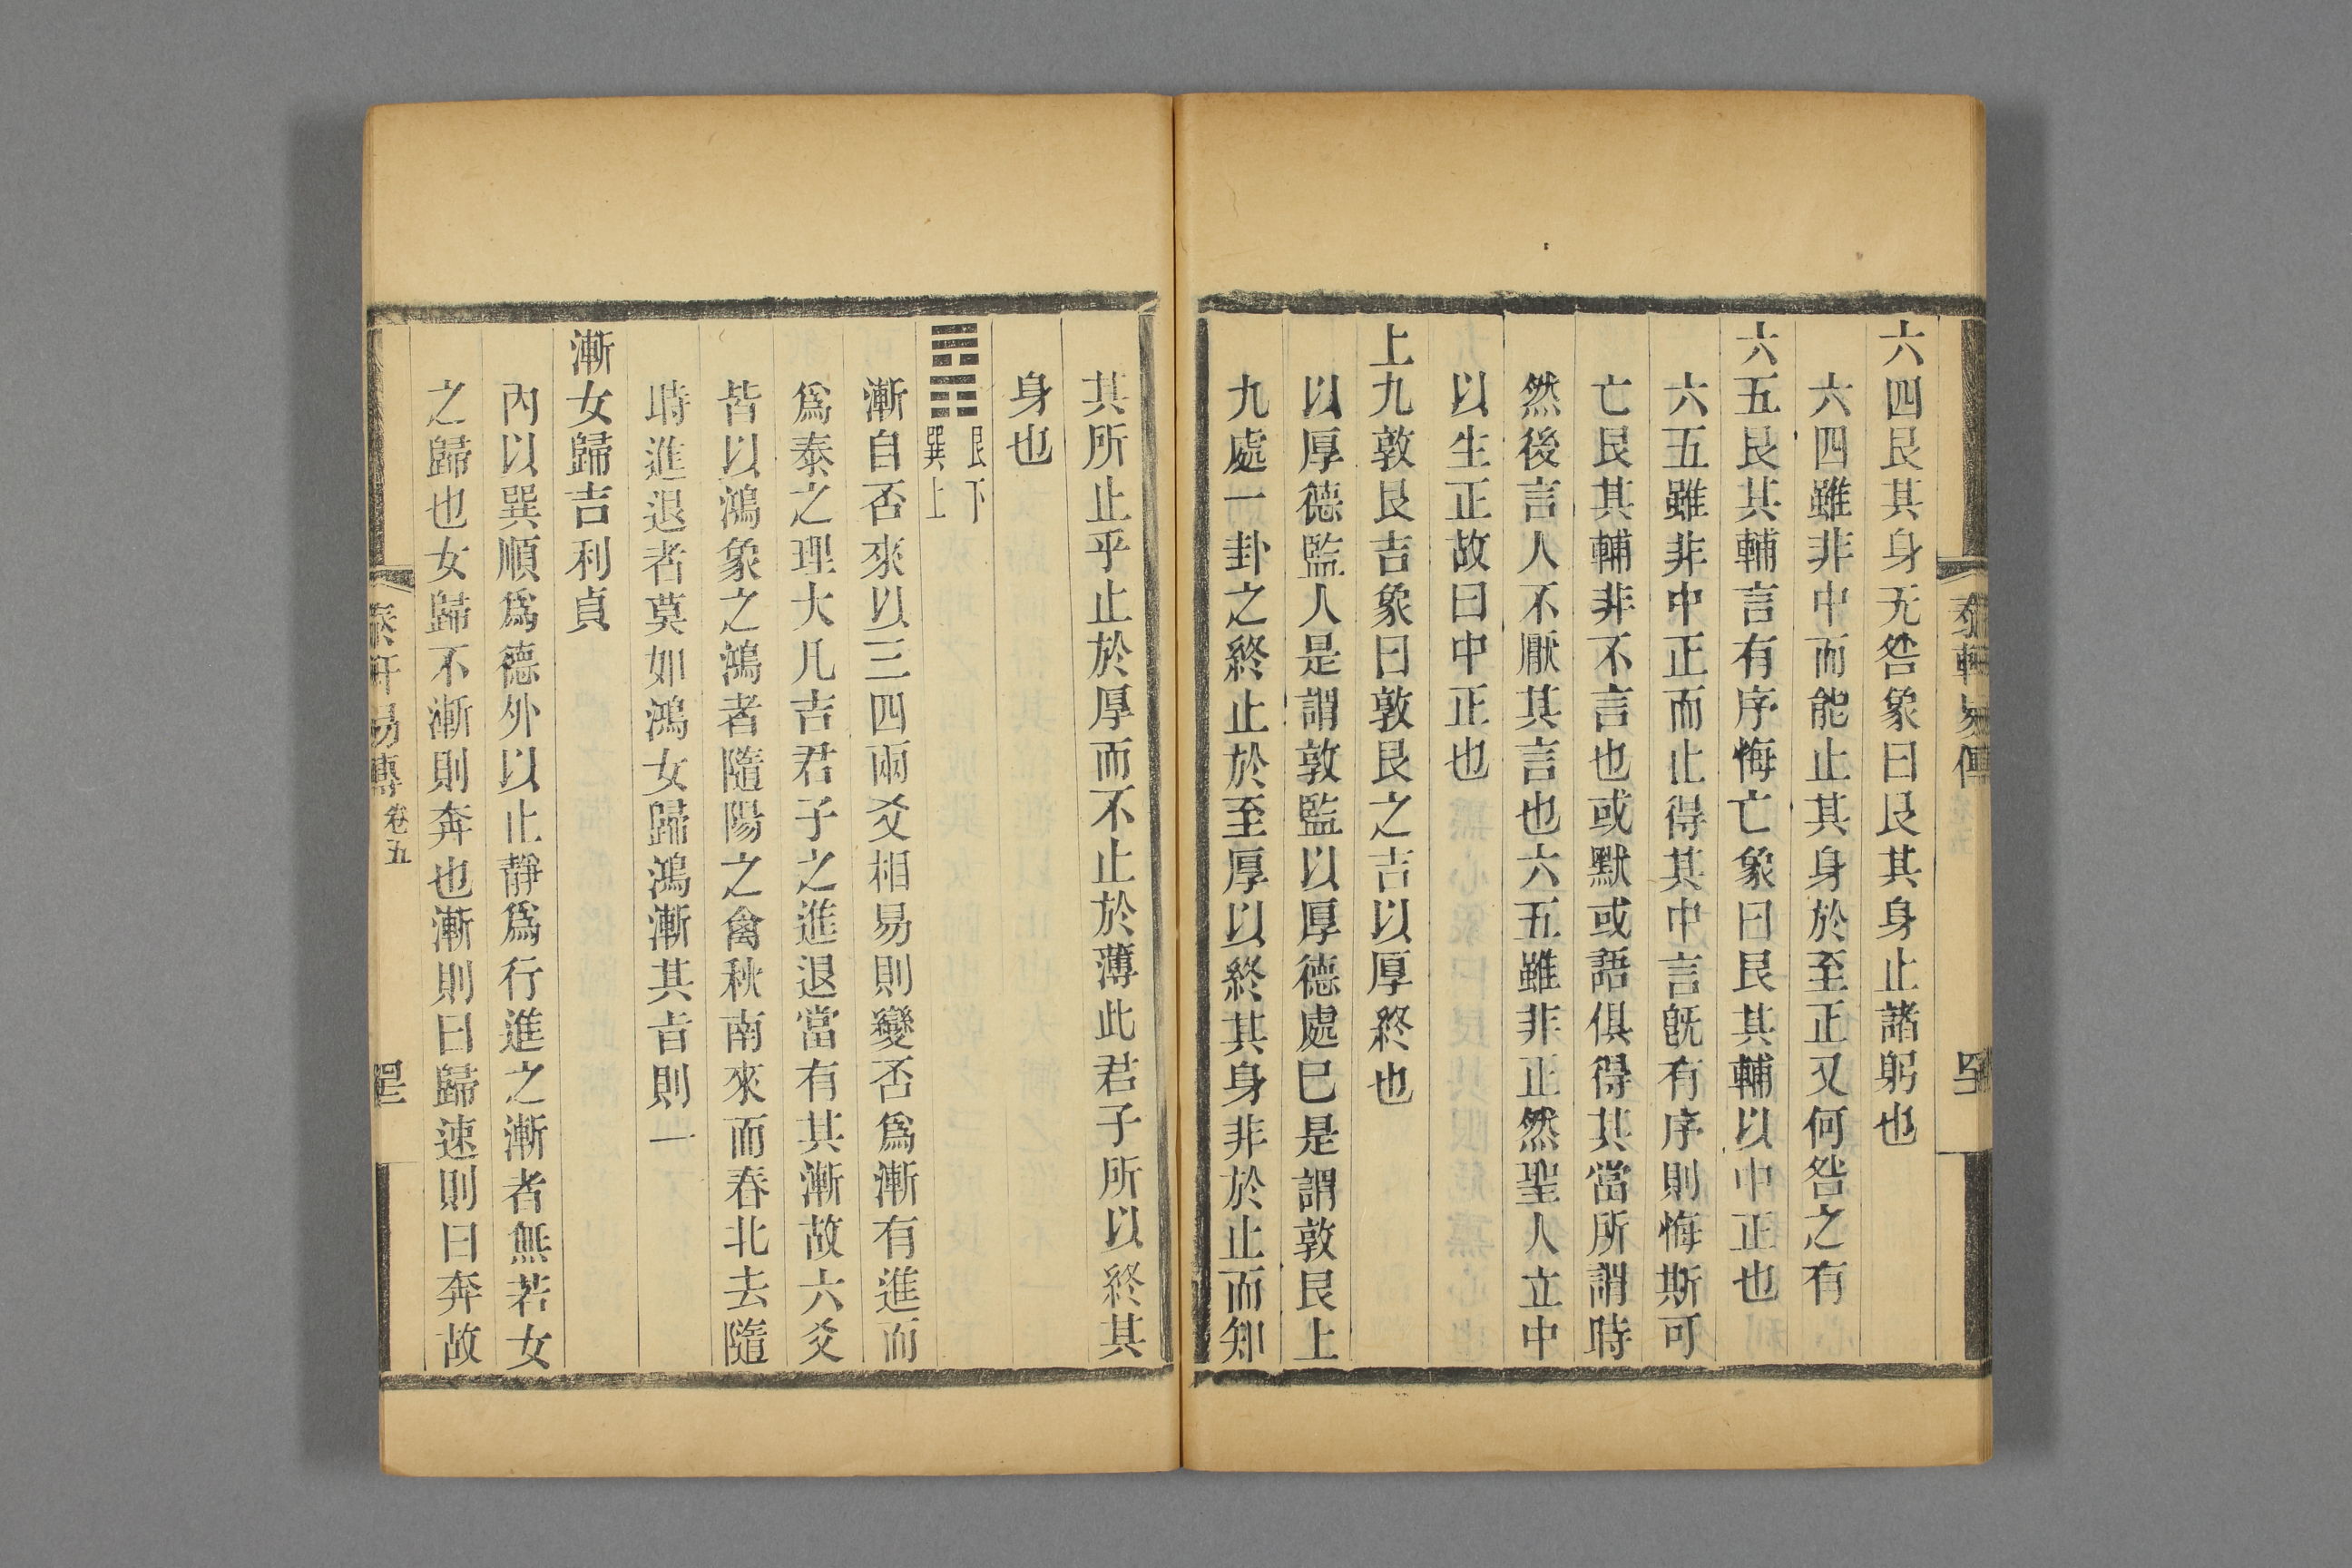 六四艮其身无咎象曰艮其身止諸躬也
六四雖非中而能止其身於至正又何咎之有
六五艮其輔言有序悔亡象曰艮其輔以中正也
六五雖非中正而止得其中言旣有序則悔斯可
亡艮其輔非不言也或默或語俱得其當所謂時
然後言人不厭其言也六五雖非正然聖人立中
以生正故曰中正也
上九敦艮吉象曰敦艮之吉以厚終也
以厚德監人是謂敦監以厚德處巳是謂敦艮上
九處一卦之終止於至厚以終其身非於止而知
其所止乎止於厚而不止於薄此君子所以終其
身也
䷴ 艮下
巽上
漸自否來以三四兩爻相易則變否爲漸有進而
爲泰之理大凡吉君子之進退當有其漸故六爻
皆以鴻象之鴻者隨陽之禽秋南來而春北去隨
時進退者莫如鴻女歸鴻漸其旨則一
漸女歸吉利貞
內以巽順爲德外以止靜爲行進之漸者無若女
之歸也女歸不漸則奔也漸則曰歸速則曰奔故
易傳 卷五